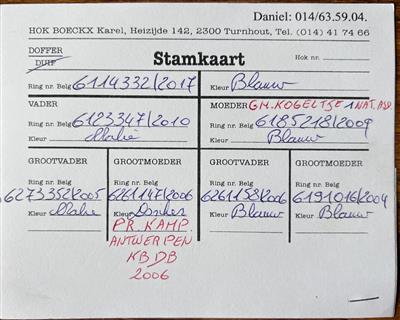 Daniel: 014/63.59.04.
HOK BOECKX Karel, Heizijde 142, 2300 Turnhout, Tel. (014) 41 74 66
DOFFER
DUIF
Stamkaart
Hok nr.
Ring nr. Belg 6114332/2017
Kleur Blauw
VADER
Ring nr. Belg 6123347/2010
Kleur Malie
MOEDER GM. KOGELTJE 1 NAT. ASD
Ring nr. Belg 6185218/2009
Kleur Blauw
GROOTVADER
Ring nr. Belg
6273352/2005
Kleur Malie
GROOTMOEDER
Ring nr. Belg
6261147/2006
Kleur Donker
PR. KAMP.
ANTWERPEN
KBDB
2006
GROOTVADER
Ring nr. Belg
6261158/2006
Kleur Blauw
GROOTMOEDER
Ring nr. Belg
6191016/2004
Kleur Blauw